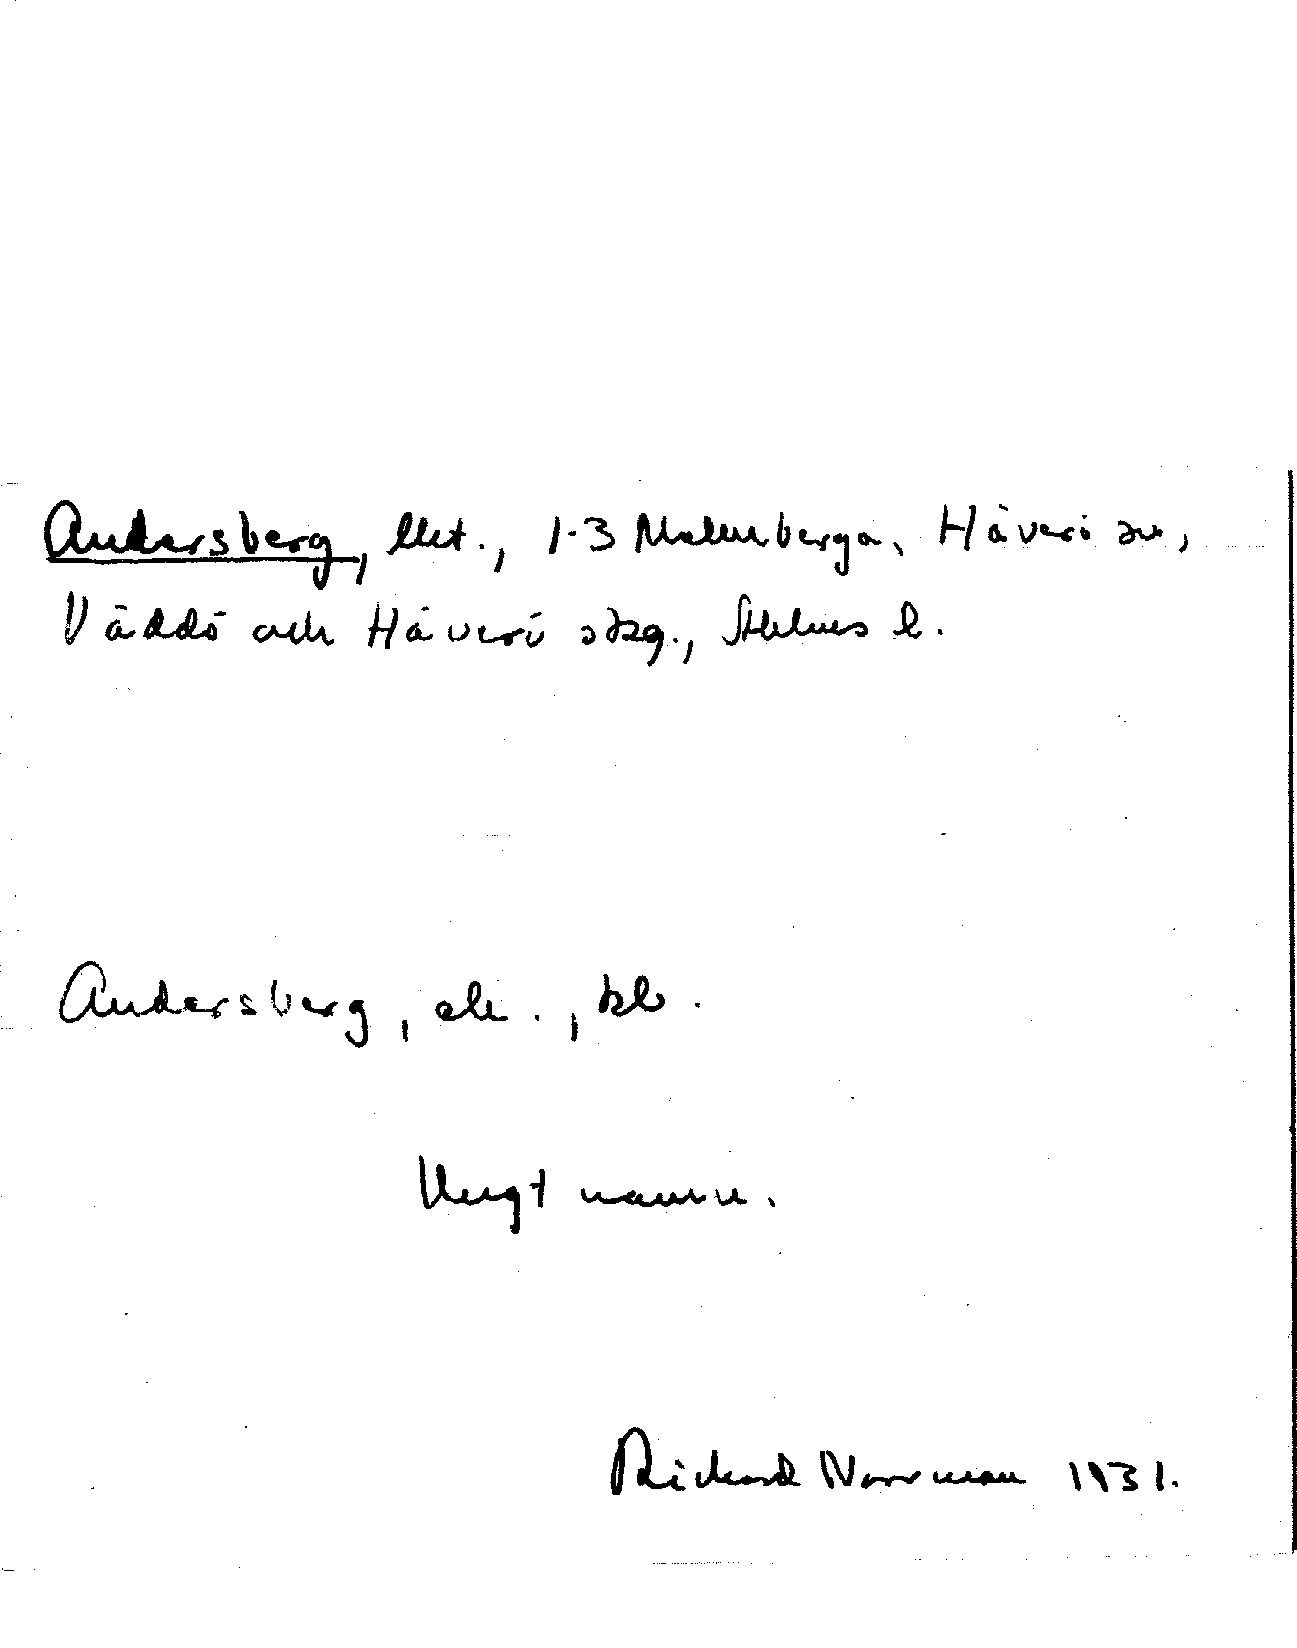 Andersberg, lht., 1-3 Malmberga, Häverö sn,
Väddö och Häverö skg., Sthlms l.
Andersberg, ek., kb.
Ungt namn.
Rickard Norrman 1931.